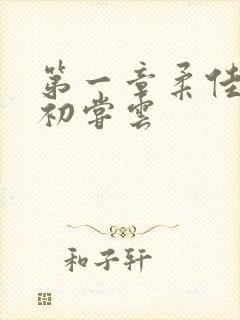 第一章柔佳
初尝云
和子轩